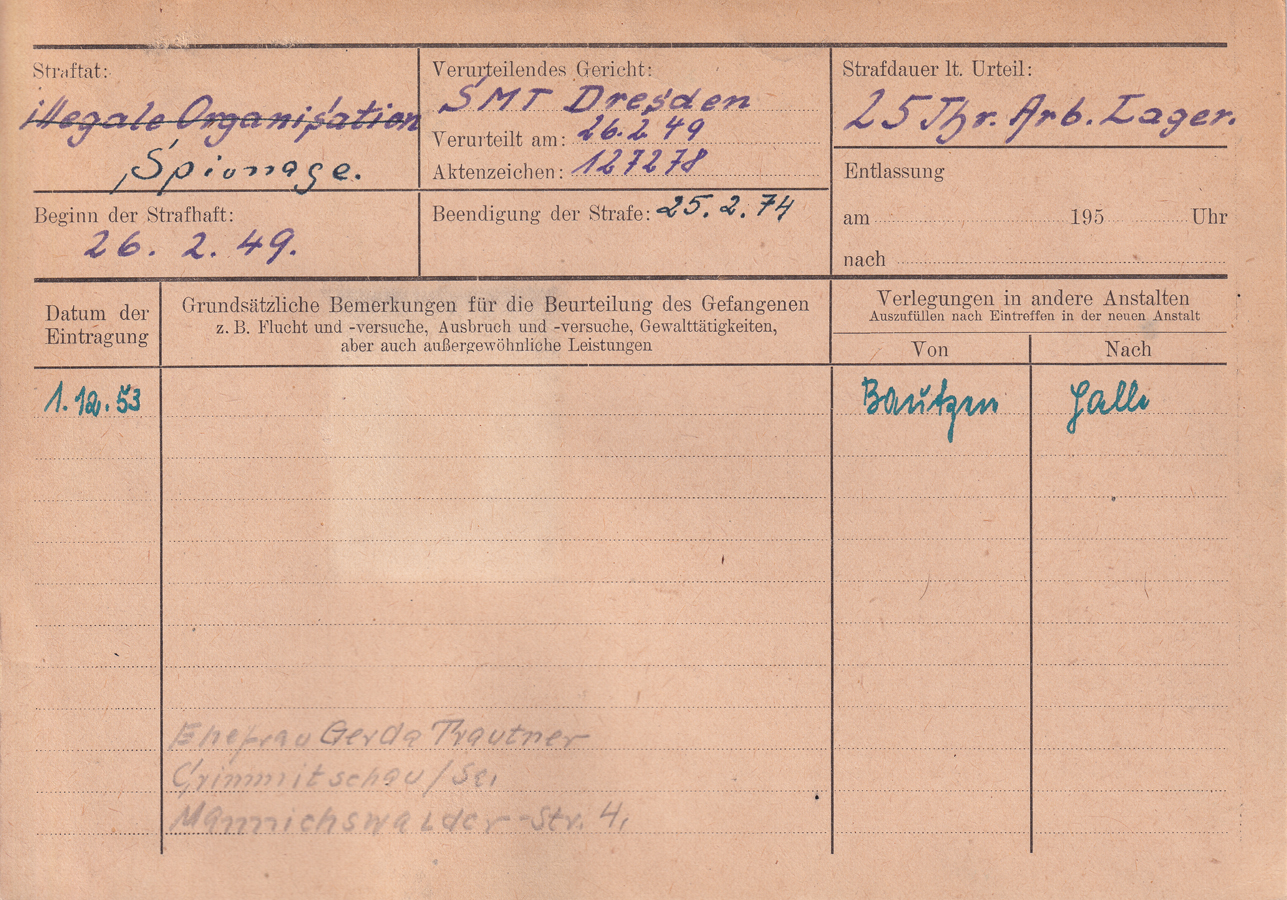 Straftat:
illegale Organisation
Spionage.
Verurteilendes Gericht:
SMT Dresden
Verurteilt am: 26.2.49
Aktenzeichen: 127278
Strafdauer lt. Urteil:
25 Jhr. Arb. Lager.
Entlassung
am 195 Uhr
nach
Beginn der Strafhaft:
26. 2. 49.
Beendigung der Strafe: 25.2.74
Datum der
Eintragung
Grundsätzliche Bemerkungen für die Beurteilung des Gefangenen
z. B. Flucht und -versuche, Ausbruch und -versuche, Gewalttätigkeiten,
aber auch außergewöhnliche Leistungen
Verlegungen in andere Anstalten
Auszufüllen nach Eintreffen in der neuen Anstalt
Von Nach
1.12.53 Bautzen Halle
Ehefrau Gerda Trautner
Crimmitschau/Sa.
Mannichswalder-Str. 4.